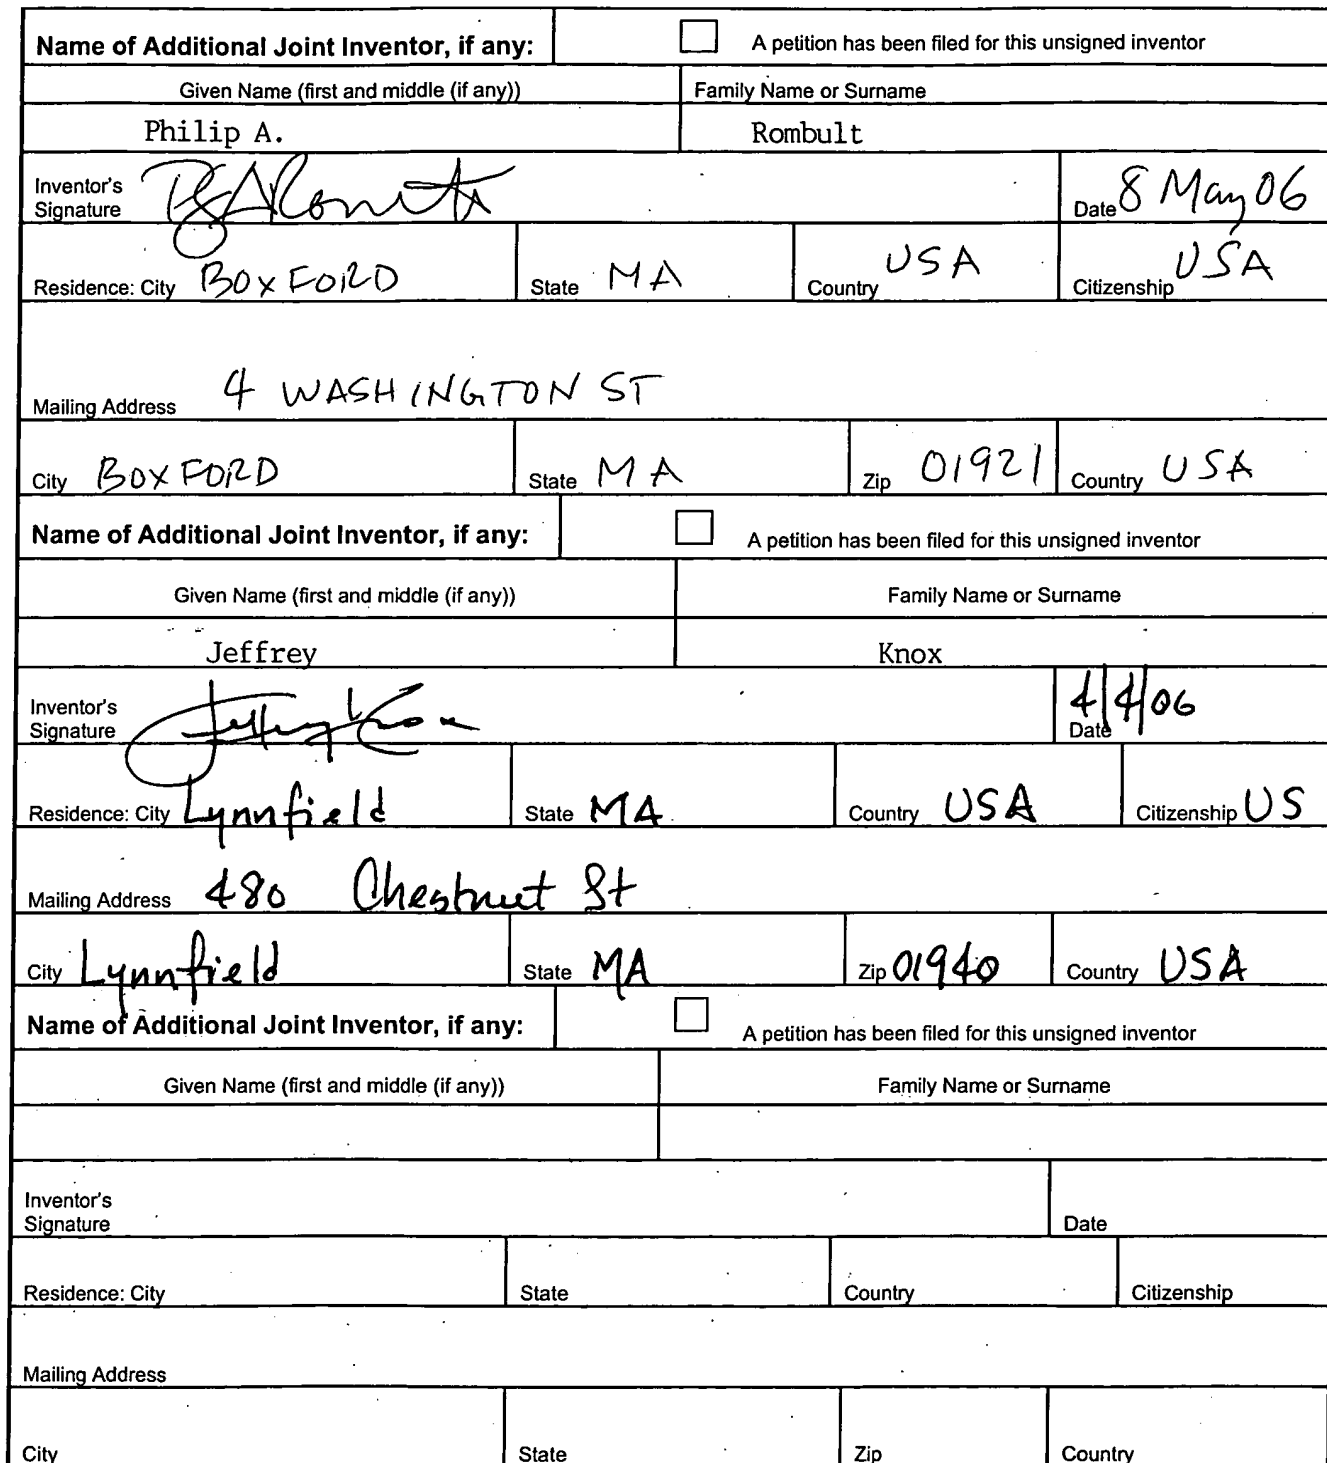 Name of Additional Joint Inventor, if any: A petition has been filed for this unsigned inventor
Given Name (first and middle (if any)) Family Name or Surname
Philip A. Rombult
Inventor's
Signature Date 8 May 06
Residence: City BOXFORD State MA Country USA Citizenship USA
Mailing Address 4 WASHINGTON ST
City BOXFORD State MA Zip 01921 Country USA
Name of Additional Joint Inventor, if any: A petition has been filed for this unsigned inventor
Given Name (first and middle (if any)) Family Name or Surname
Jeffrey Knox
Inventor's
Signature Jeffrey Knox Date 4/4/06
Residence: City Lynnfield State MA Country USA Citizenship US
Mailing Address 480 Chestnut St
City Lynnfield State MA Zip 01940 Country USA
Name of Additional Joint Inventor, if any: A petition has been filed for this unsigned inventor
Given Name (first and middle (if any)) Family Name or Surname
Inventor's
Signature Date
Residence: City State Country Citizenship
Mailing Address
City State Zip Country